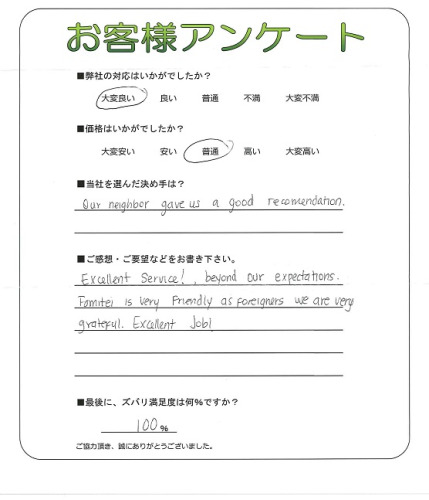 お客様アンケート
■弊社の対応はいかがでしたか？
大変良い 良い 普通 不満 大変不満
■価格はいかがでしたか？
大変安い 安い 普通 高い 大変高い
■当社を選んだ決め手は？
Our neighbor gave us a good recomendation.
■ご感想・ご要望などをお書き下さい。
Excellent Service!, beyond our expectations.
is very Friendly as foreigners we are very
grateful. Excellent Job!
■最後に、ズバリ満足度は何％ですか？
100%
ご協力頂き、誠にありがとうございました。